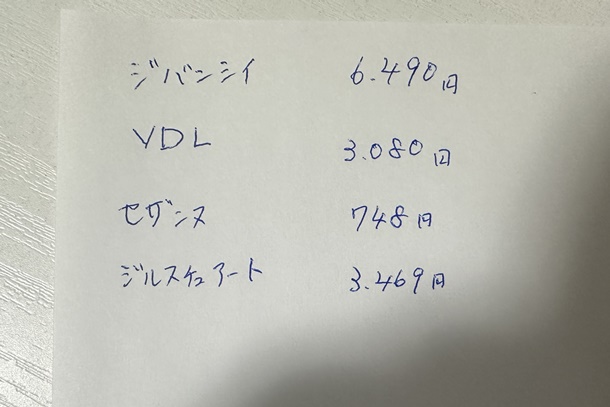 ジバンシイ 6.490円
VDL 3.080円
セザンヌ 748円
ジルスチュアート 3.469円